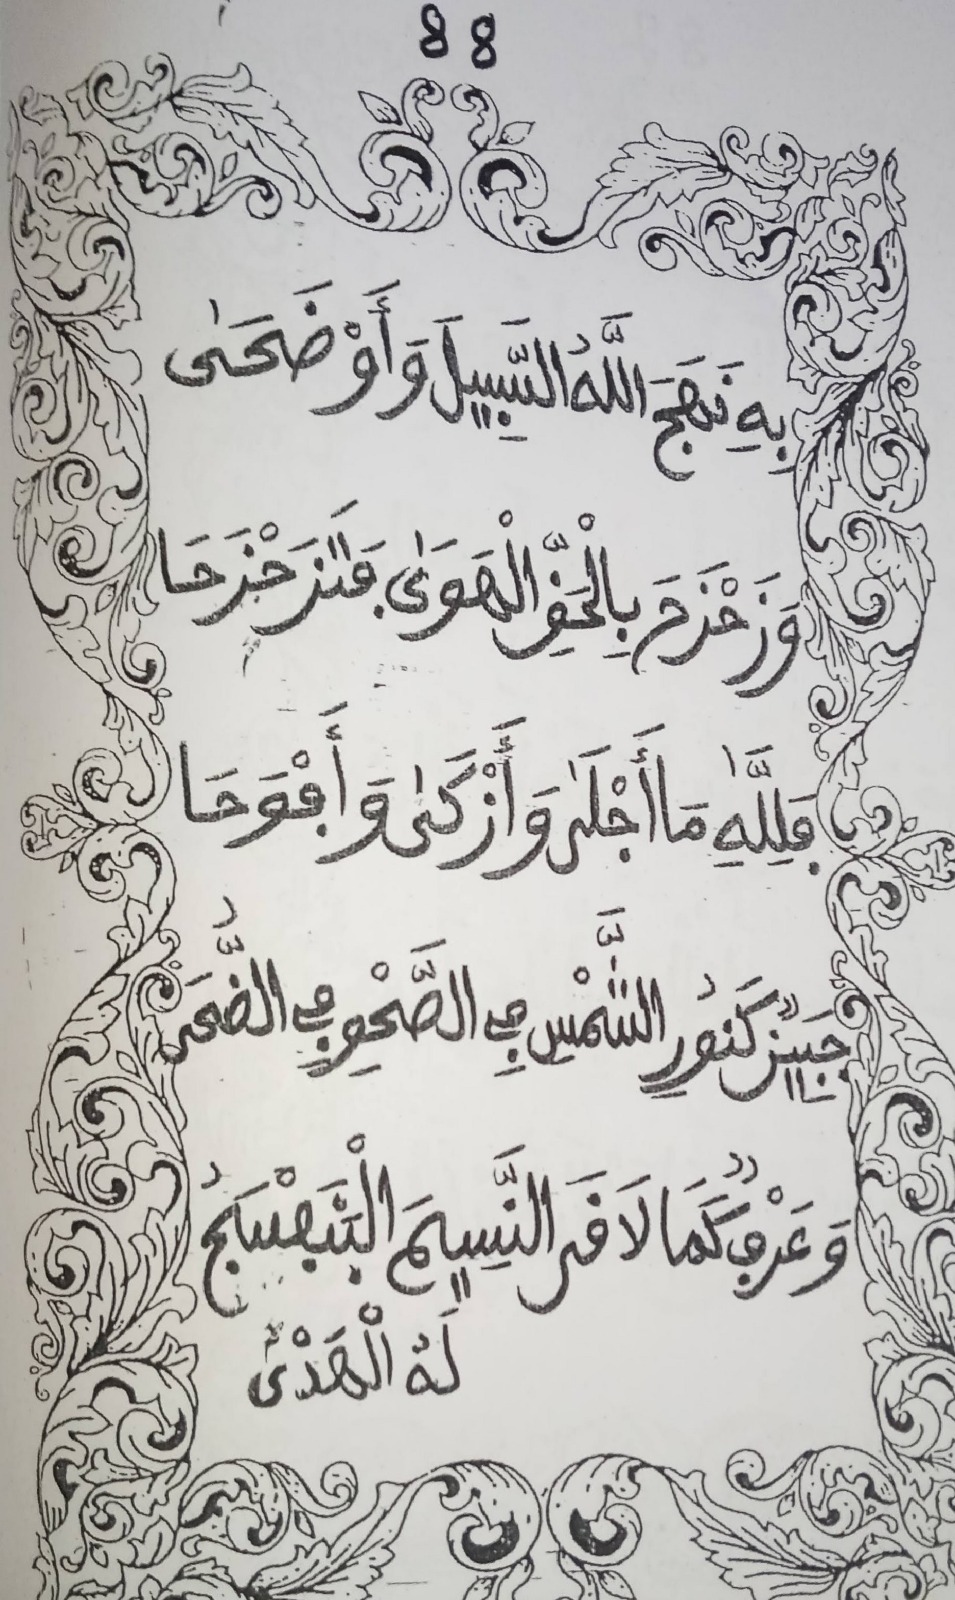 88
بِهِ نَهَجَ اللَّهُ السَّبِيلَ وَأَوْضَحَى
وَزَحْزَحَ بِالْحَقِّ الْهَوَىٰ فَتَزَحْزَحَا
فَلِلَّهِ مَا أَجْلَىٰ وَأَزْكَىٰ وَأَفْوَحَا
جَبِينٌ كَنُورِ الشَّمْسِ فِي الصَّحْوِ فِي الضُّحَى
وَعَرْفٌ كَمَا لَاقَى النَّسِيمَ
لَهُ الْهَدْىُ